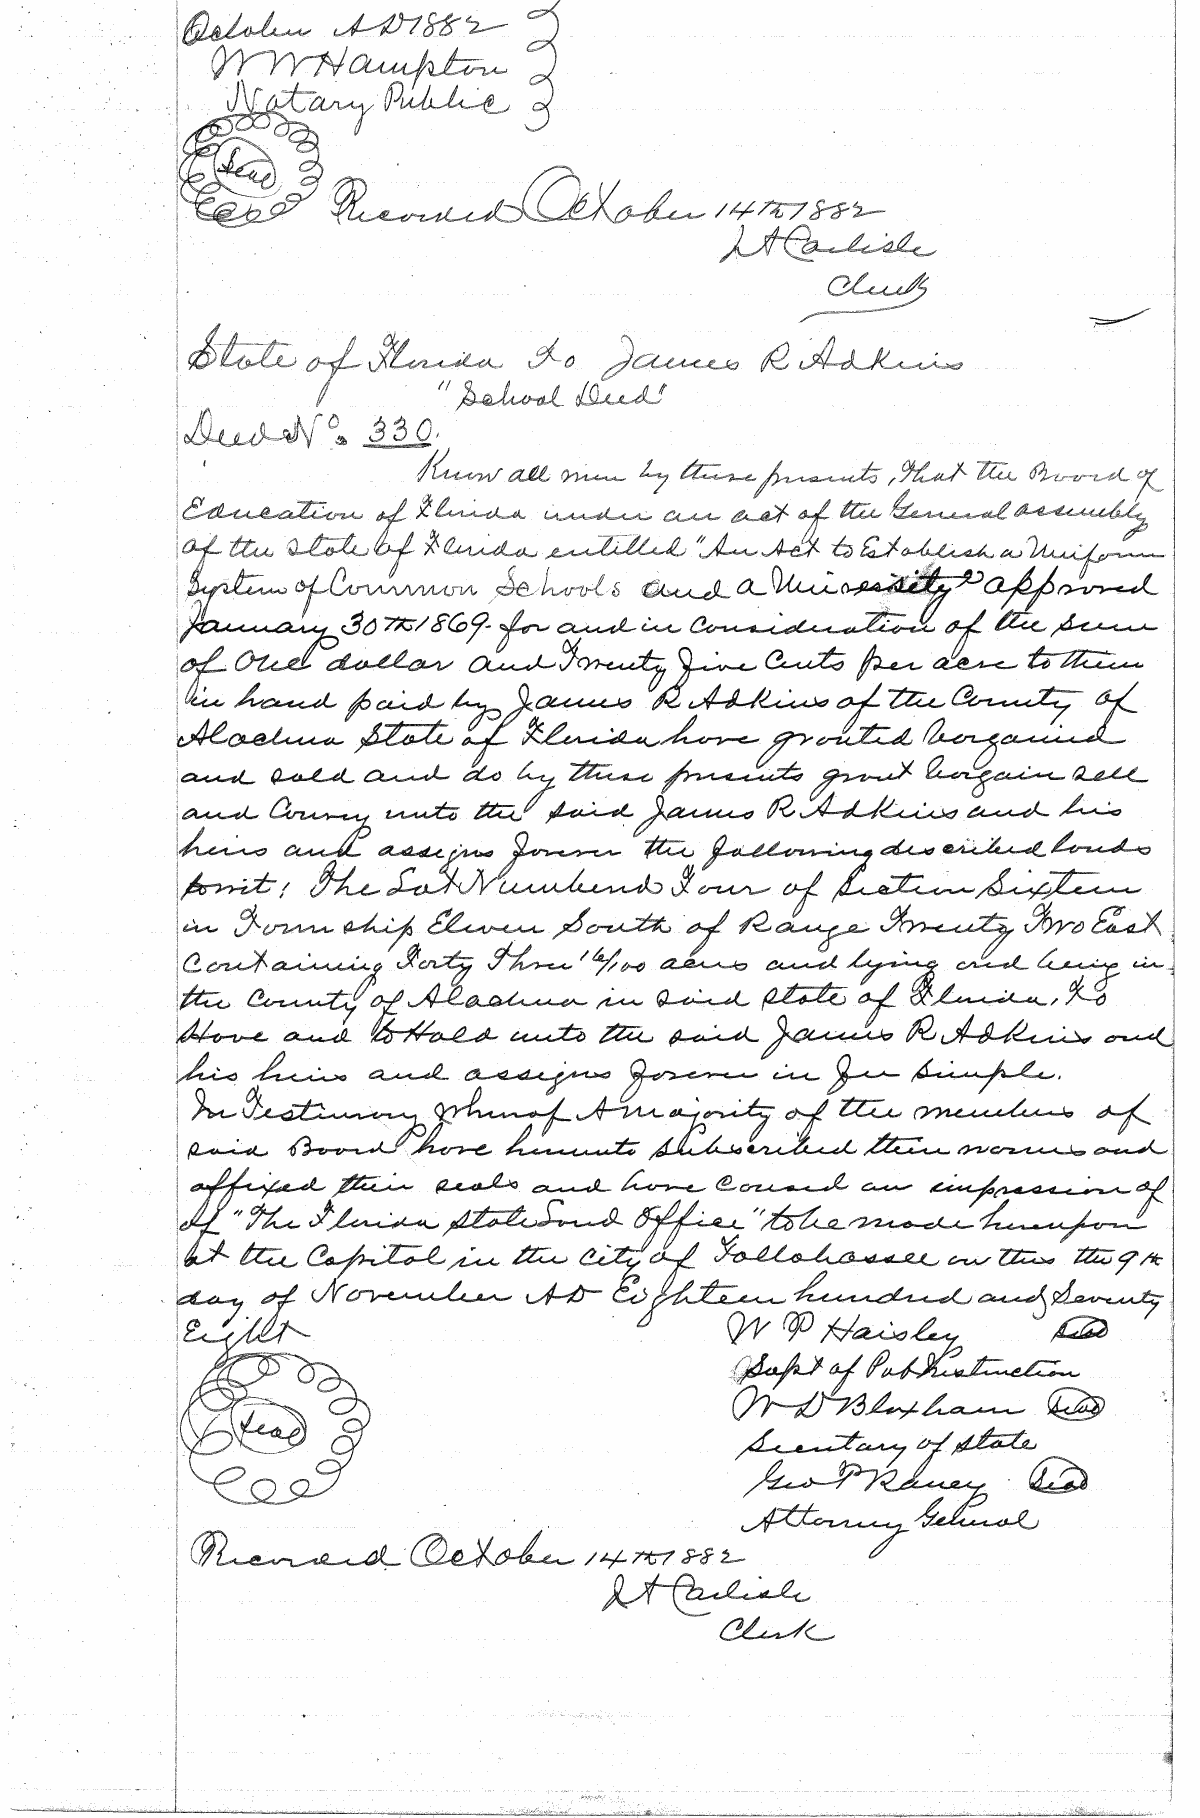 October AD 1882
W W Hampton
Notary Public
Seal
Recorded October 14th 1882
Carlisle
Clerk
State of Florida to James R Adkins
"School Deed"
Deed No. 330.
Know all men by these presents, That the Board of
Education of Florida under an act of the General assembly
of the state of Florida entitled "An Act to Establish a Uniform
System of Common Schools and a University" approved
January 30th 1869. for and in consideration of the sum
of One dollar and Twenty five Cents per acre to them
in hand paid by James R Adkins of the County of
Alachua State of Florida have granted bargained
and sold and do by these presents grant bargain sell
and Convey unto the said James R Adkins and his
heirs and assigns forever the following described lands
towit; The Lot Numbered Four of Section Sixteen
in Township Eleven South of Range Twenty Two East
Containing Forty Three 16/100 acres and lying and being in
the County of Alachua in said state of Florida. To
Have and to Hold unto the said James R Adkins and
his heirs and assigns forever in fee simple.
In Testimony Whereof A majority of the members of
said Board have hereunto subscribed their names and
affixed their seals and have caused an impression of
of "The Florida State Land Office" to be made hereupon
at the Capitol in the city of Tallahassee on this the 9th
day of November AD Eighteen hundred and Seventy
Eight
W P Haisley Seal
Supt of Pub Instruction
W D Bloxham Seal
Secretary of State
Geo P Raney Seal
Attorney General
Seal
Recorded October 14th 1882
Carlisle
Clerk